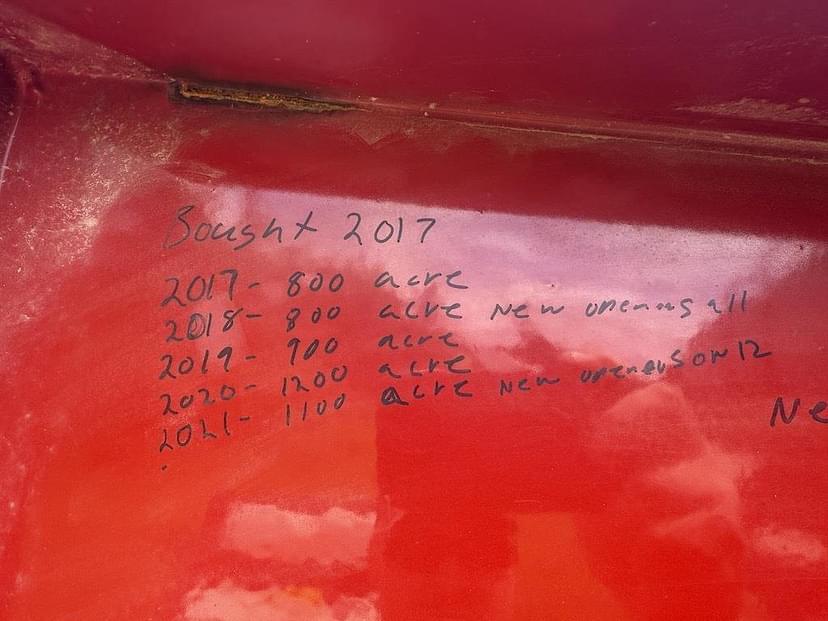 Bought 2017
2017- 800 acre
2018- 800 acre New openers all
2019- 900 acre
2020- 1200 acre
2021- 1100 acre New openers on 12
Ne